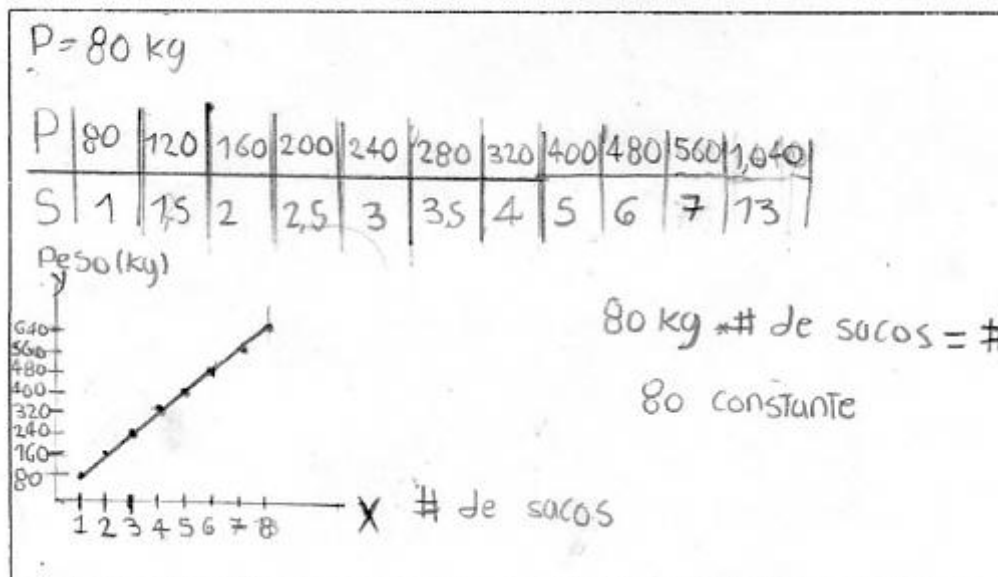 P=80 kg
P | 80 | 120 | 160 | 200 | 240 | 280 | 320 | 400 | 480 | 560 | 1,040 |
S | 1 | 1,5 | 2 | 2,5 | 3 | 3,5 | 4 | 5 | 6 | 7 | 13 |
Peso (kg)
y
640
560
480
400
320
240
160
80
1 2 3 4 5 6 7 8
X # de sacos
80 kg * # de sacos = #
80 constante